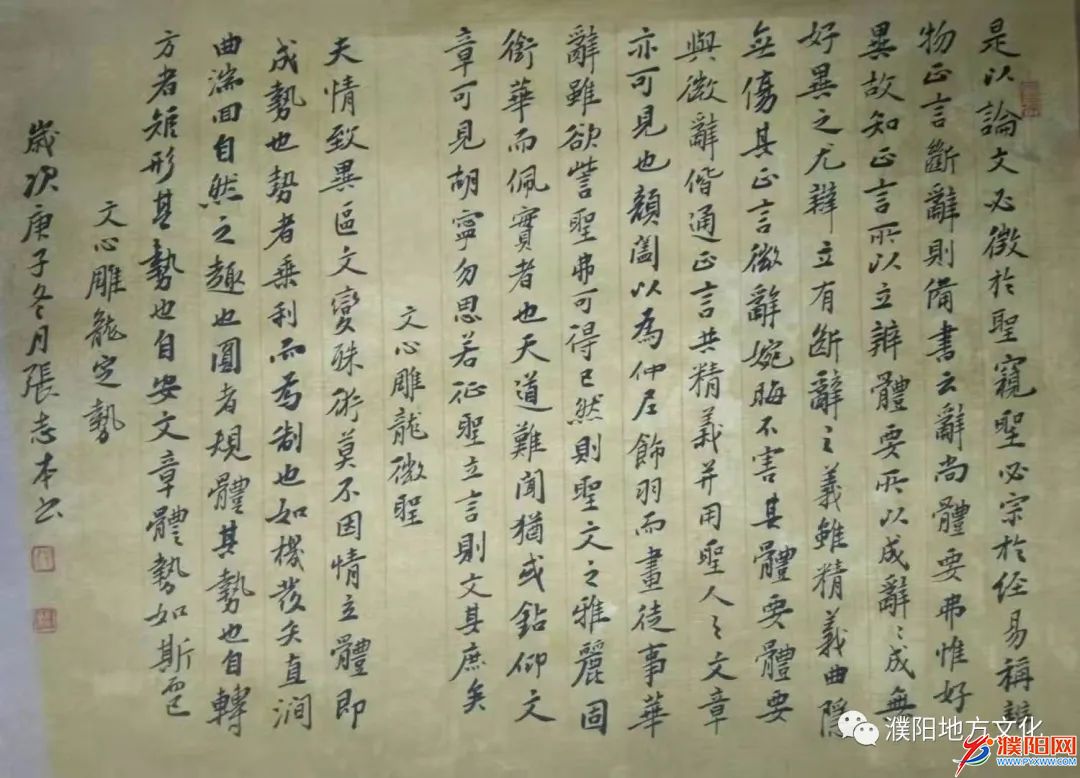 是以論文必徵於聖窺聖必宗於经易稱辨
物正言斷辭則備書云辭尚體要弗惟好
異故知正言所以立辨體要所以成辭〻成無
好異之尤辯立有斷辭之義雖精義曲隱
無傷其正言微辭婉晦不害其體要體要
與微辭偕通正言共精義并用聖人之文章
亦可見也顏闔以為仲尼飾羽而畫徒事華
辭雖欲訾聖弗可得已然則聖文之雅麗固
銜華而佩實者也天道難聞猶或鉆仰文
章可見胡寧勿思若征聖立言則文其庶矣
文心雕龍徵聖
夫情致異區文變殊術莫不因情立體即
成勢也勢者乘利而為制也如機發矢直澗
曲湍回自然之趣也圓者規體其勢也自轉
方者矩形其勢也自安文章體勢如斯而已
文心雕龍定勢
歲次庚子冬月張志本书
濮阳地方文化
濮阳网
WWW.PYXWW.COM